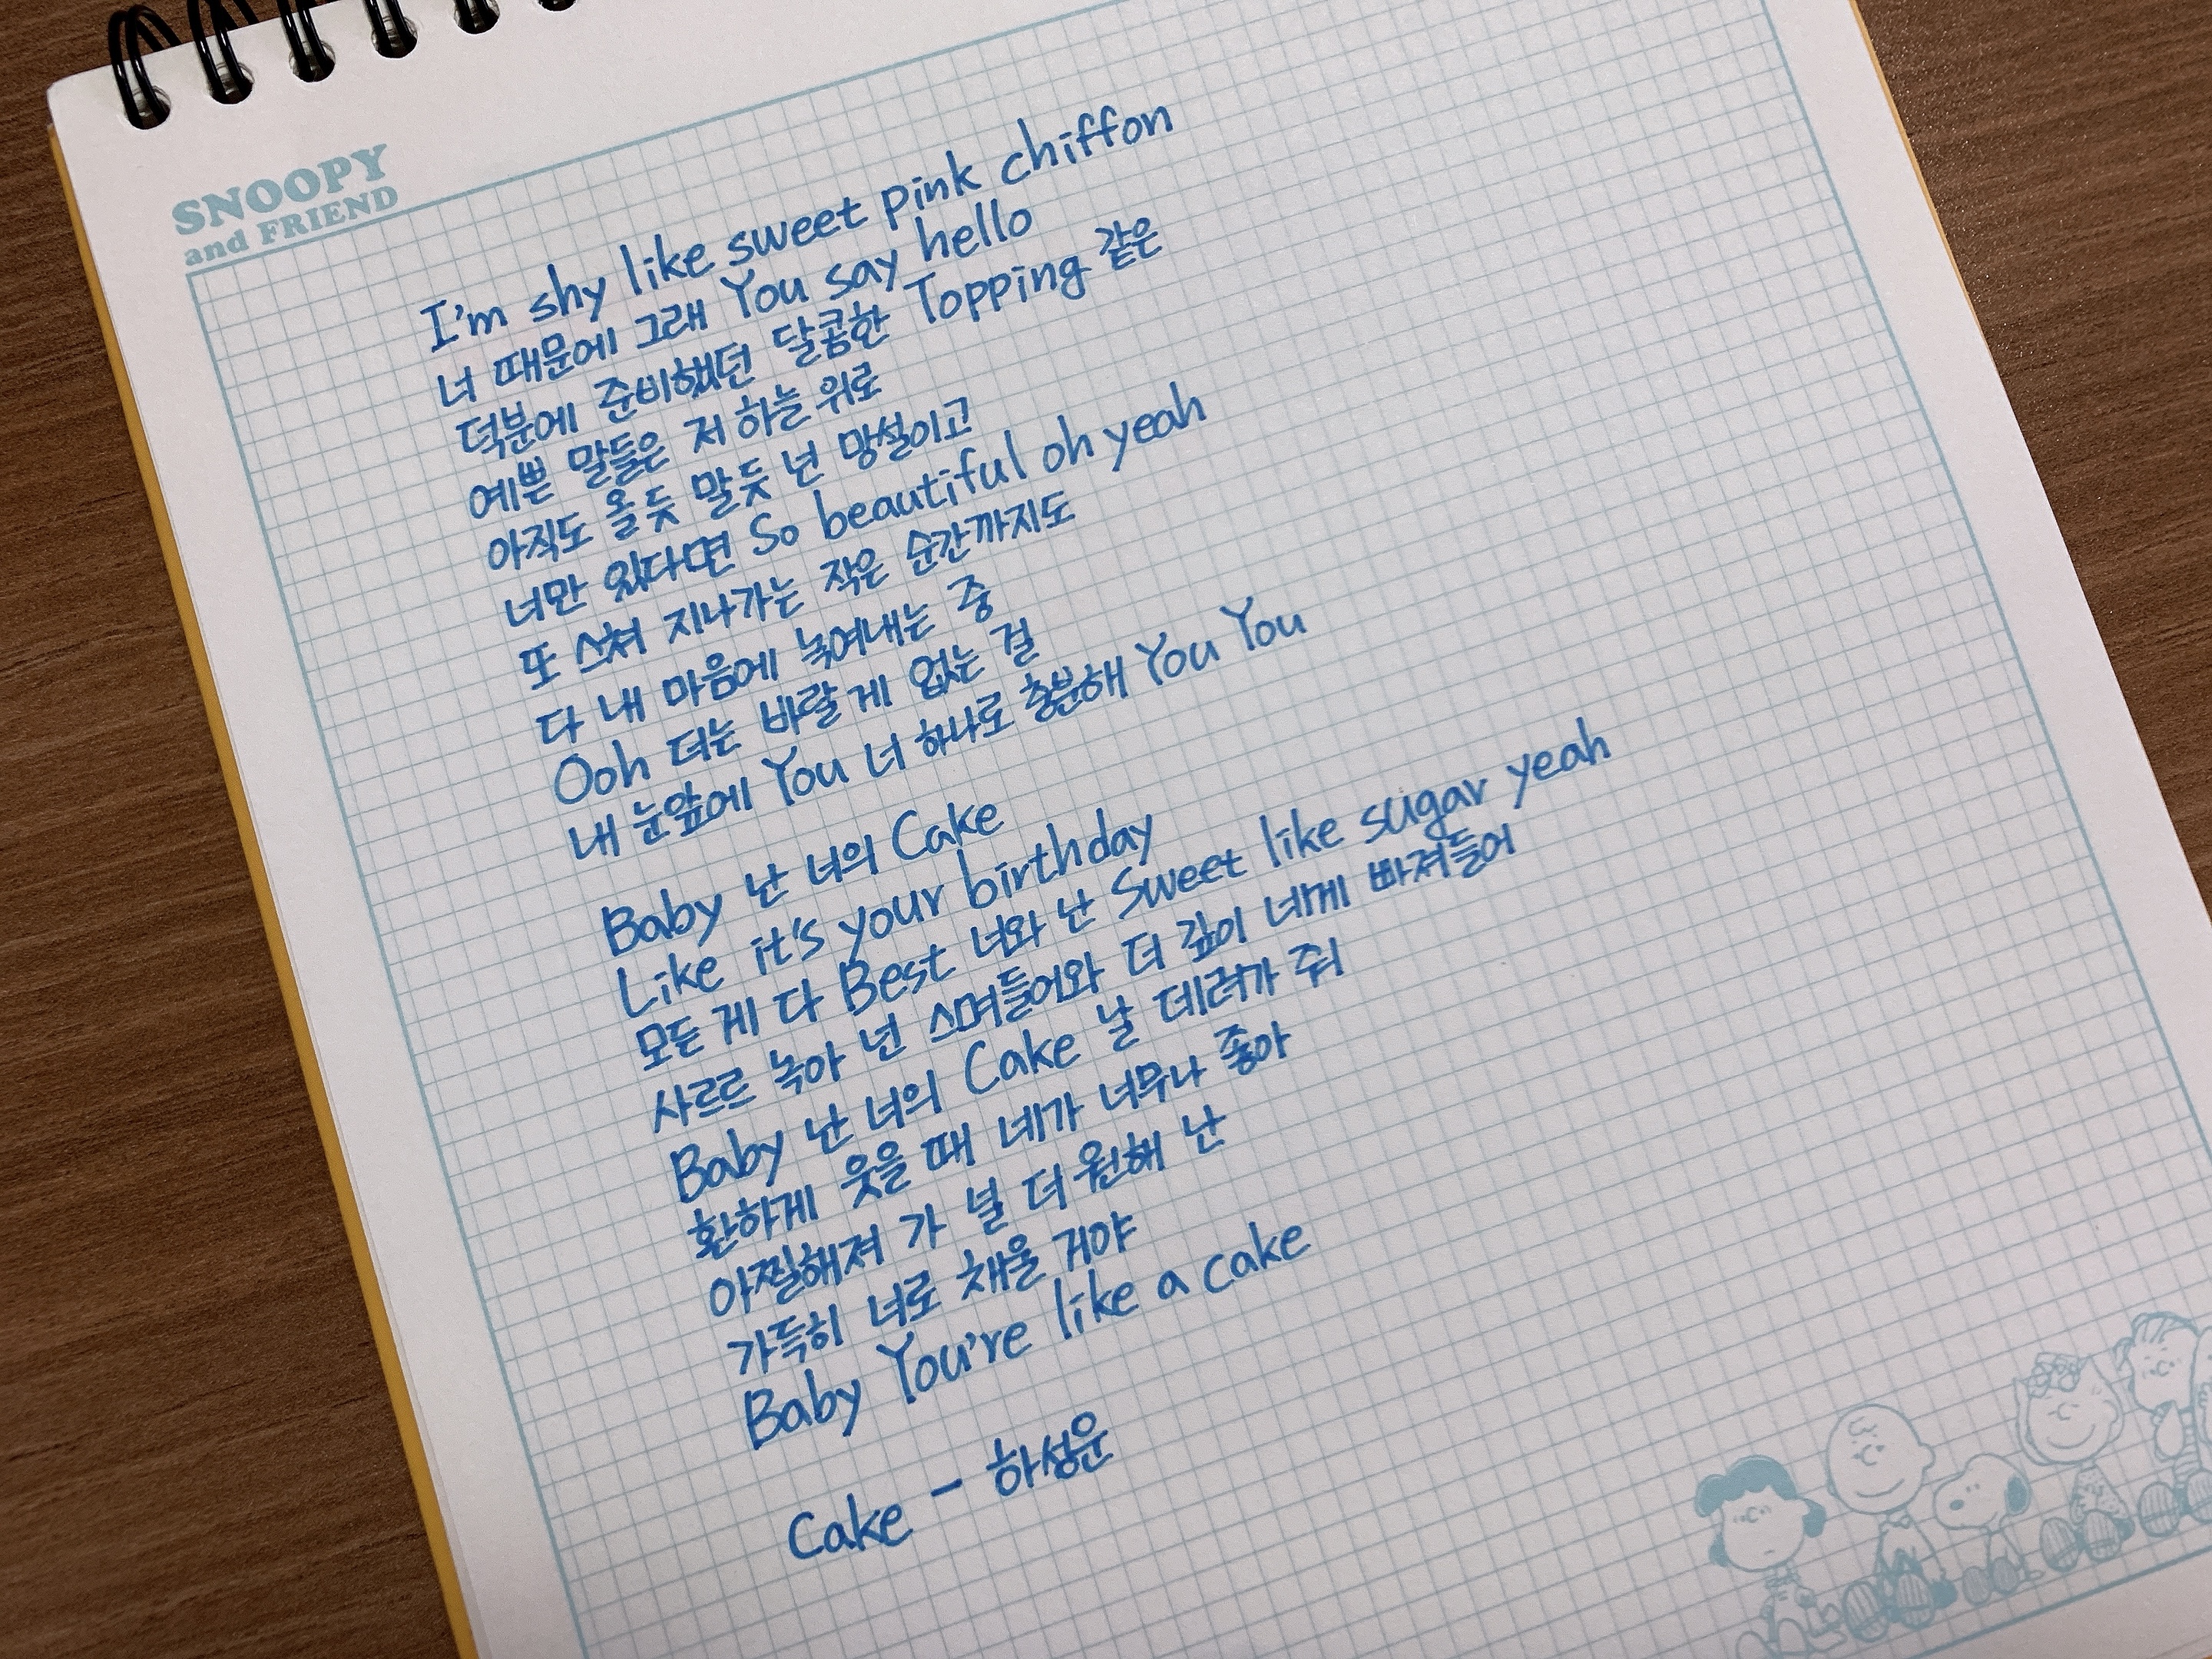 SNOOPY
and FRIEND
I'm shy like sweet pink chiffon
너 때문에 그래 You say hello
덕분에 준비했던 달콤한 Topping 같은
예쁜 말들은 저 하늘 위로
아직도 올 듯 말 듯 넌 망설이고
너만 있다면 So beautiful oh yeah
또 스쳐 지나가는 작은 순간까지도
다 내 마음에 녹여내는 중
Ooh 더는 바랄 게 없는 걸
내 눈앞에 You 너 하나로 충분해 You You
Baby 난 너의 Cake
Like it's your birthday
모든 게 다 Best 너와 난 Sweet like sugar yeah
사르르 녹아 넌 스며들어와 더 깊이 네게 빠져들어
Baby 난 너의 Cake 날 데려가 줘
환하게 웃을 때 네가 너무나 좋아
아찔해져 가 널 더 원해 난
가득히 너로 채울 거야
Baby You're like a cake
Cake - 하성운